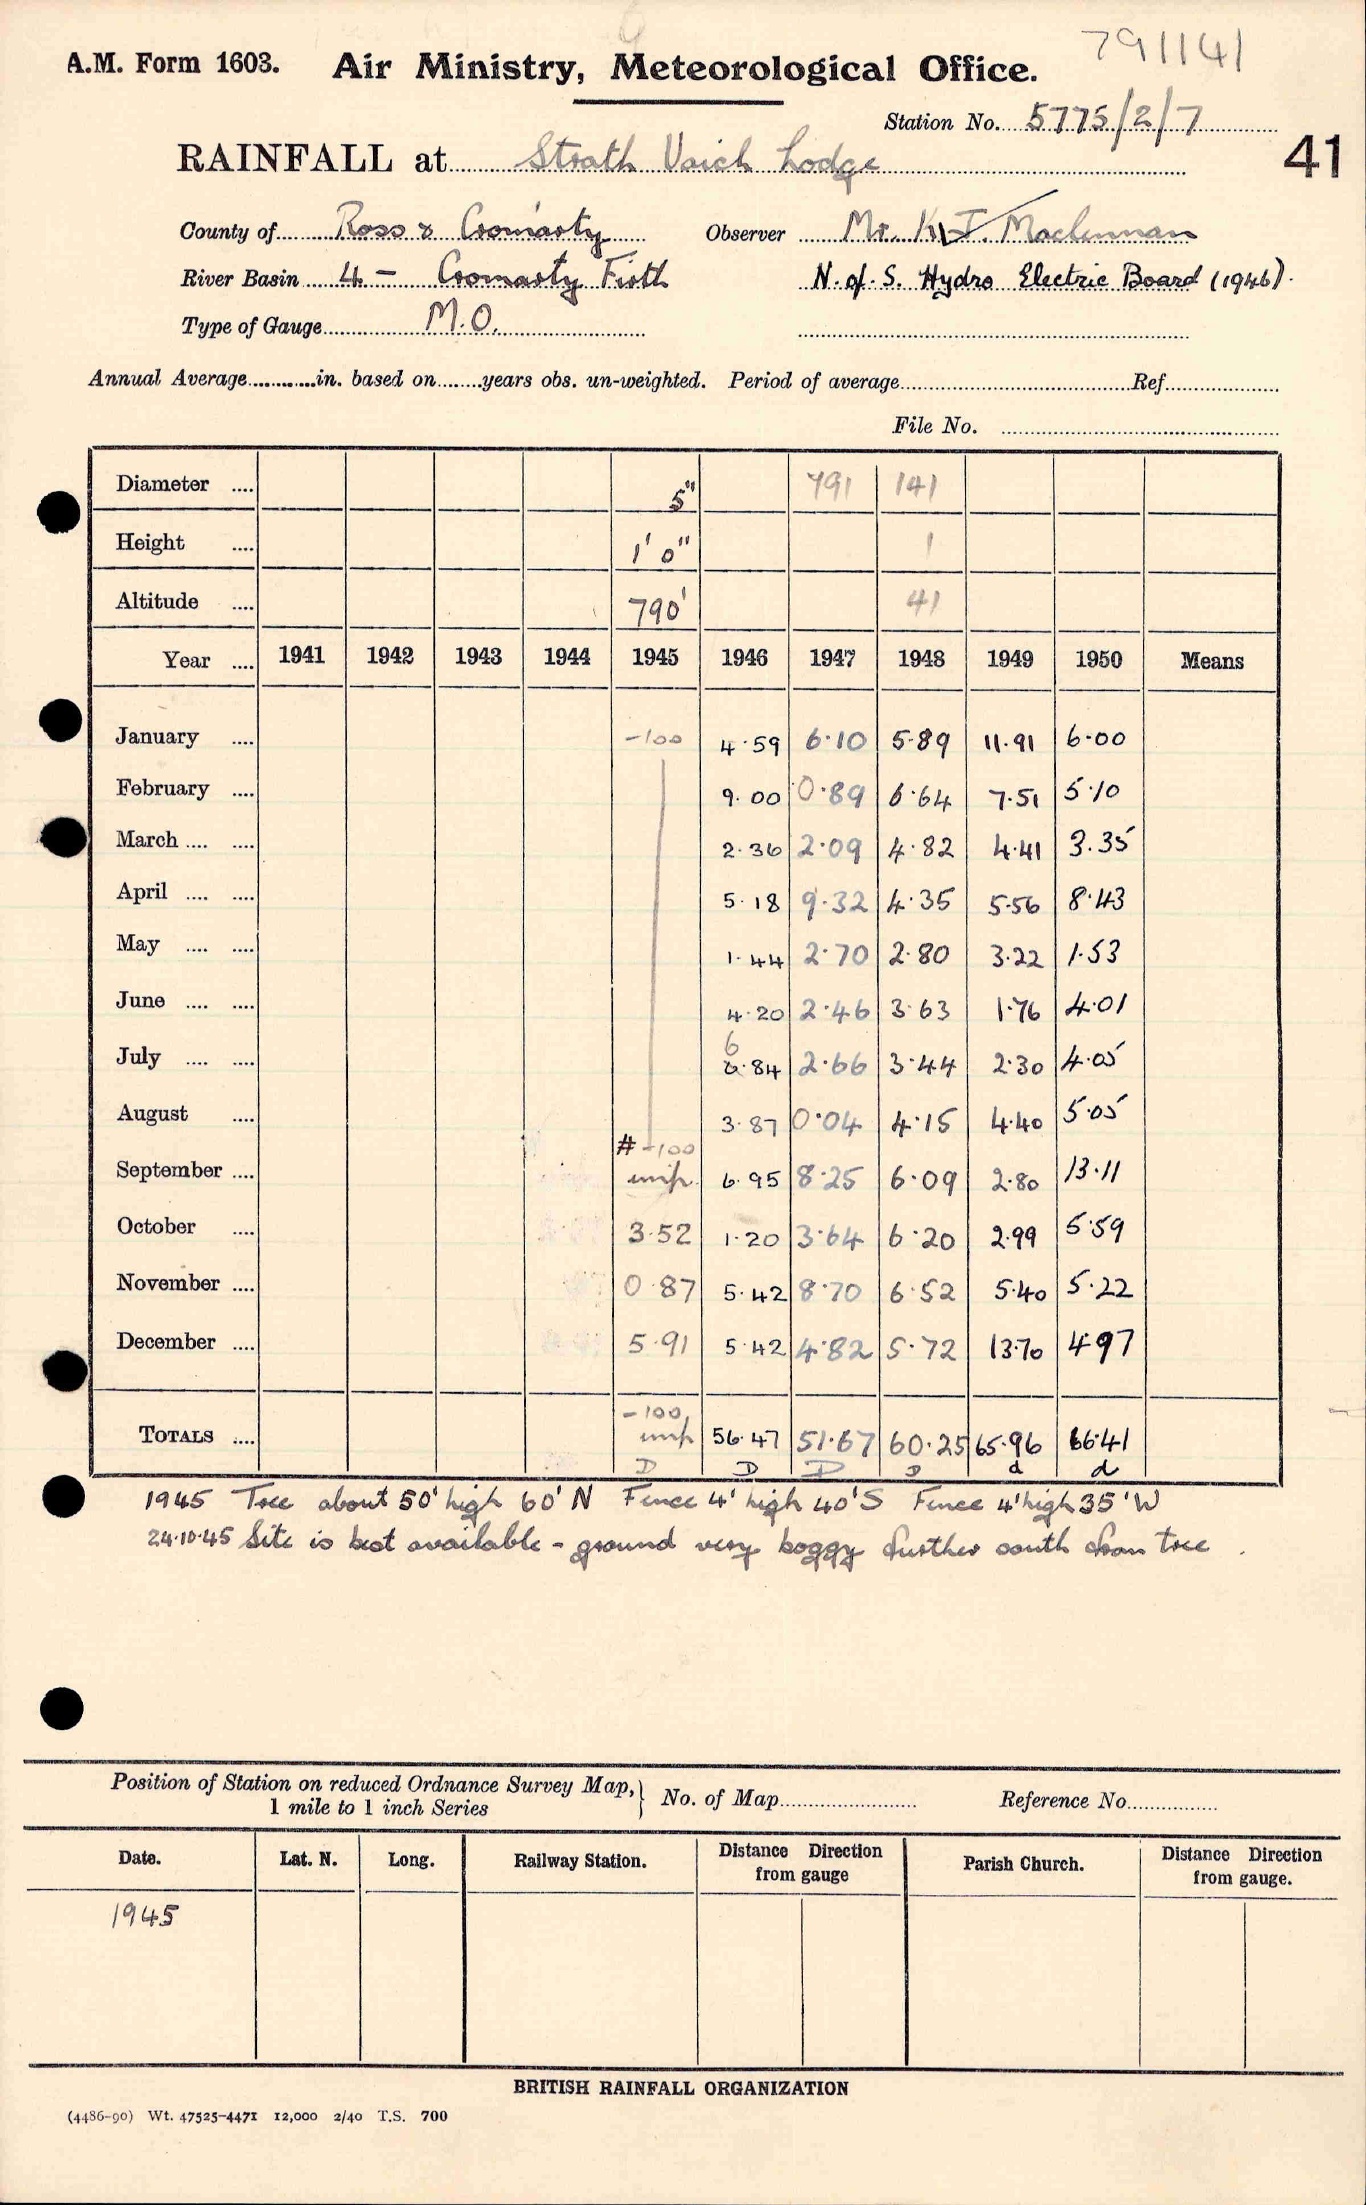 791141
A.M. Form 1603. Air Ministry, Meteorological Office.
Station No. 5775/2/7
RAINFALL at Strath Vaich Lodge
41
County of Ross & Cromarty Observer Mr. K. J. Maclennan
River Basin 4 - Cromarty Firth N. of. S. Hydro Electric Board (1946).
Type of Gauge M.O.
Annual Average............in. based on........years obs. un-weighted. Period of average............Ref............
File No. ............
Diameter .... 5" 791 141
Height .... 1' 0" 1
Altitude .... 790' 41
Year .... 1941 1942 1943 1944 1945 1946 1947 1948 1949 1950 Means
January .... -100 4.59 6.10 5.89 11.91 6.00
February .... 9.00 0.89 6.64 7.51 5.10
March .... .... 2.36 2.09 4.82 4.41 3.35
April .... .... 5.18 9.32 4.35 5.56 8.43
May .... .... 1.44 2.70 2.80 3.22 1.53
June .... .... 4.20 2.46 3.63 1.76 4.01
6
July .... .... 6.84 2.66 3.44 2.30 4.05
August .... 3.87 0.04 4.15 4.40 5.05
# -100
September .... unp. 6.95 8.25 6.09 2.80 13.11
October .... 3.52 1.20 3.64 6.20 2.99 5.59
November .... 0.87 5.42 8.70 6.52 5.40 5.22
December .... 5.91 5.42 4.82 5.72 13.70 4.97
-100
TOTALS .... unp 56.47 51.67 60.25 65.96 66.41
D D D D d d
1945 Tree about 50' high 60' N Fence 4' high 40' S Fence 4' high 35' W
24.10.45 Site is best available - ground very boggy further south from tree.
Position of Station on reduced Ordnance Survey Map, } No. of Map............ Reference No............
1 mile to 1 inch Series
Date. Lat. N. Long. Railway Station. Distance Direction from gauge Parish Church. Distance Direction from gauge.
1945
BRITISH RAINFALL ORGANIZATION
(4486-90) Wt. 47525-4471 12,000 2/40 T.S. 700